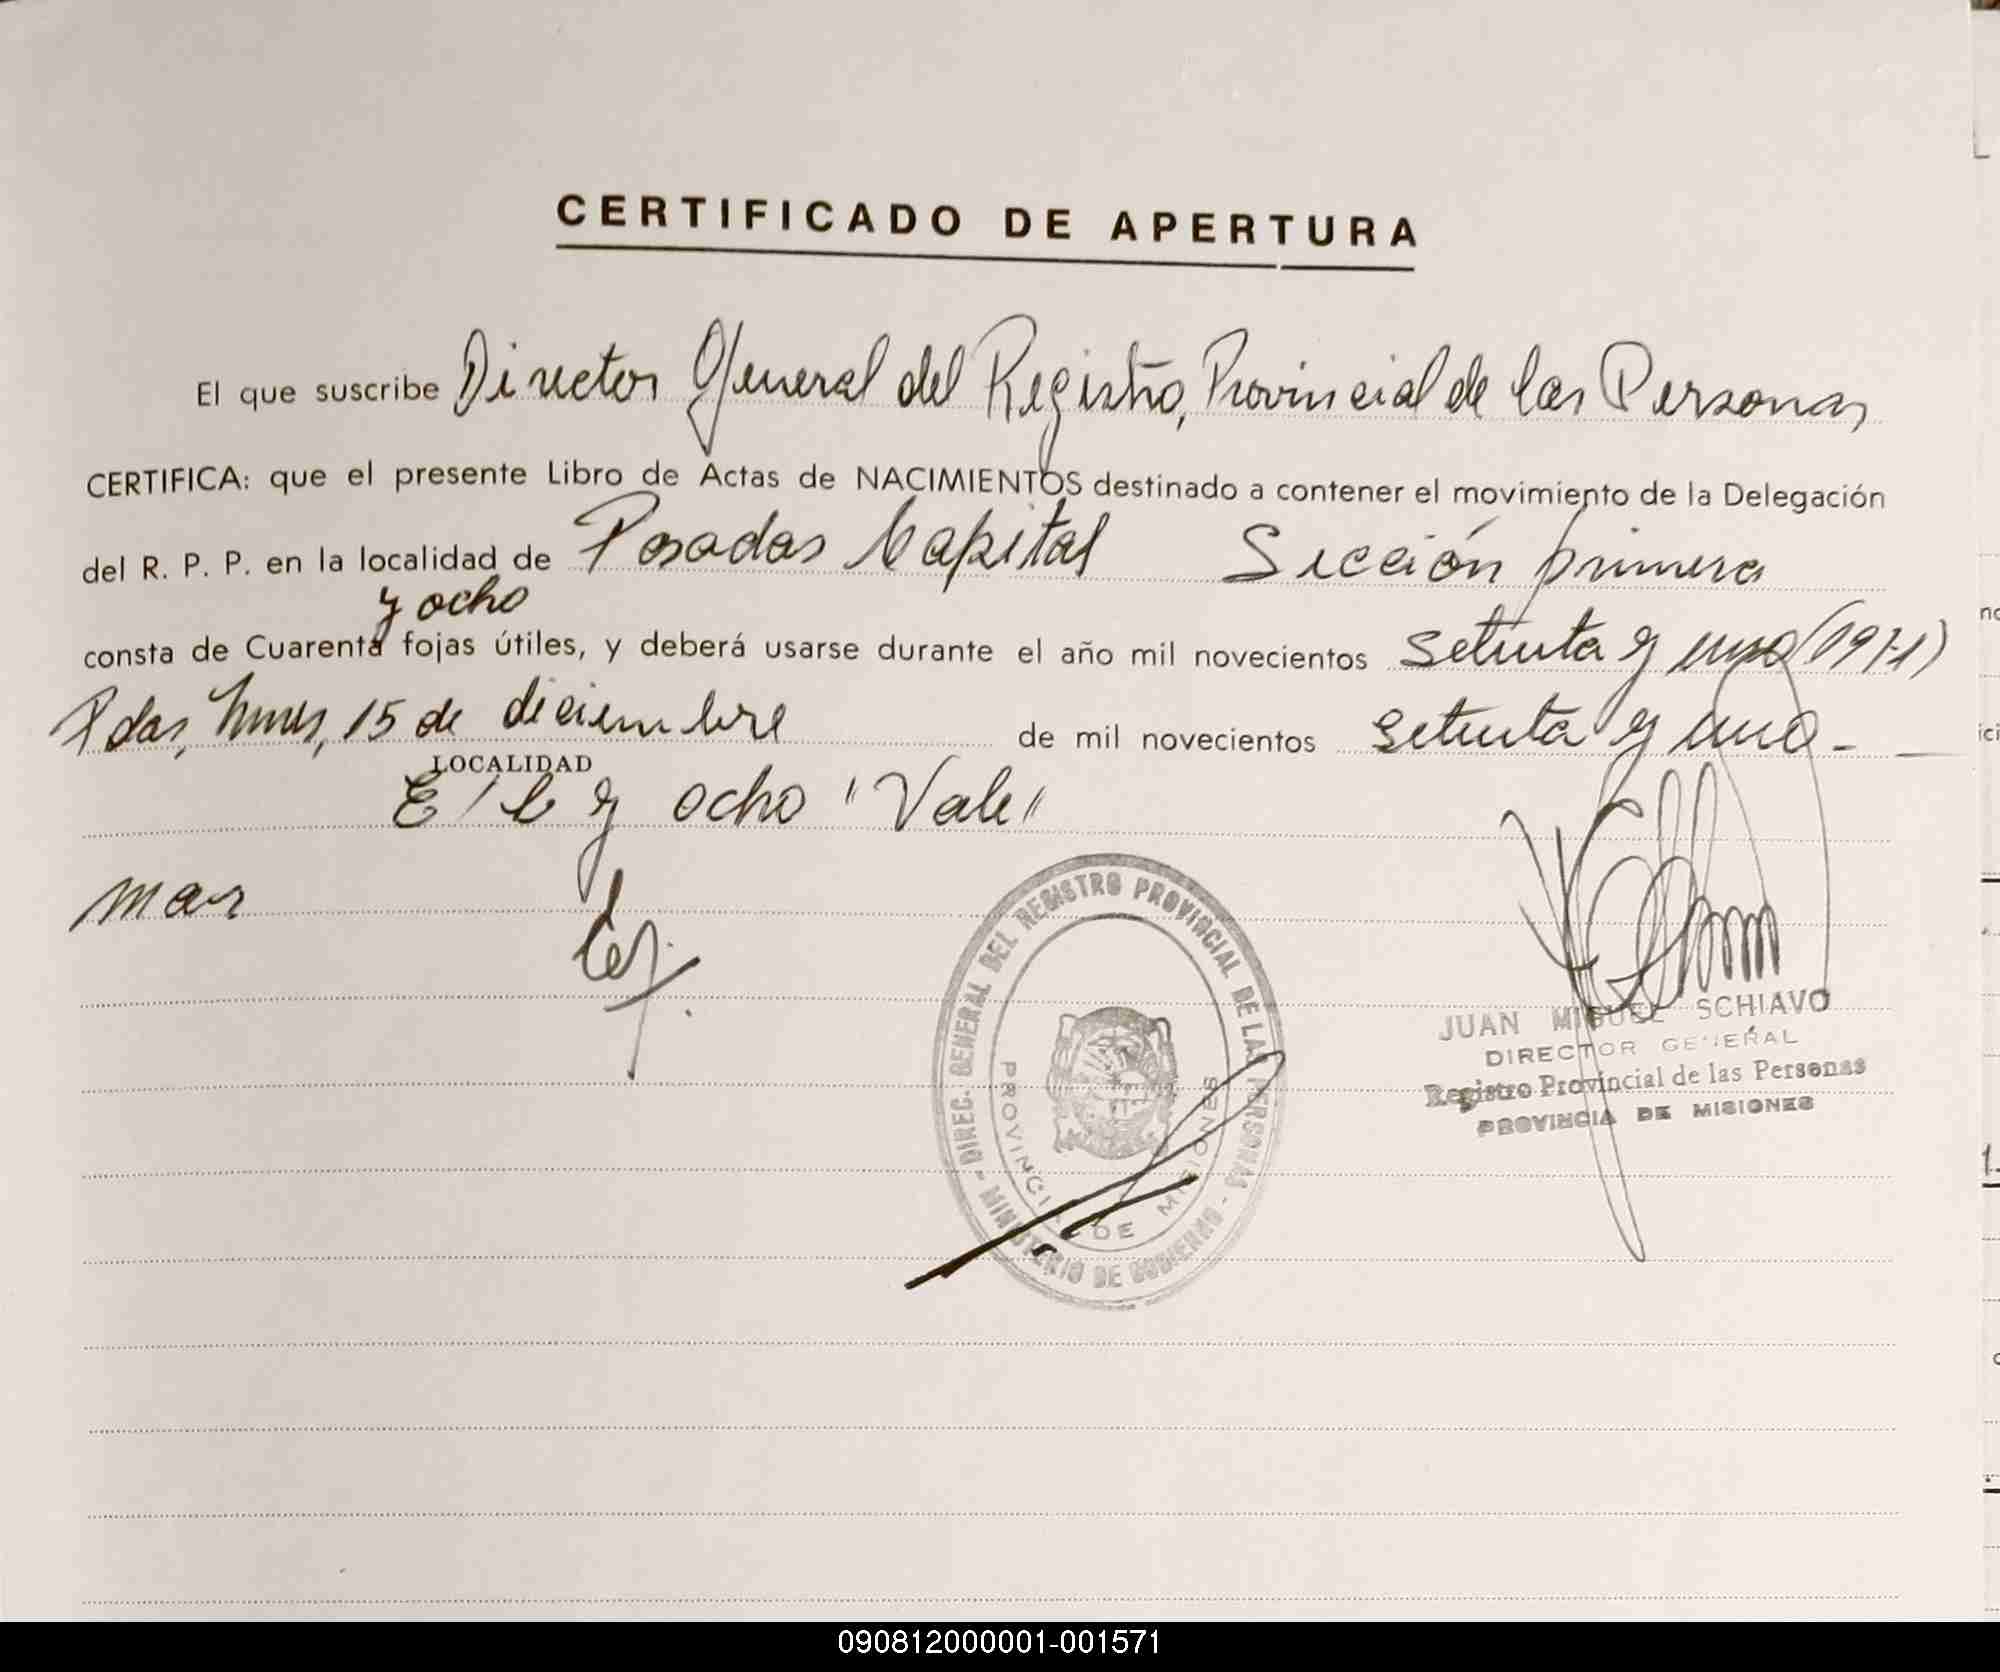 CERTIFICADO DE APERTURA
El que suscribe Director General del Registro, Provincial de las Personas
CERTIFICA: que el presente Libro de Actas de NACIMIENTOS destinado a contener el movimiento de la Delegación
del R. P. P. en la localidad de Posadas Capital Sección primera
y ocho
consta de Cuarenta fojas útiles, y deberá usarse durante el año mil novecientos setenta y uno (1971)
Pdas, Mnes, 15 de diciembre de mil novecientos setenta y uno -
LOCALIDAD
E/L y ocho "Vale"
mar
DIREC. GENERAL DEL REGISTRO PROVINCIAL DE LAS PERSONAS - MINISTERIO DE GOBIERNO -
PROVINCIA DE MISIONES
JUAN MIGUEL SCHIAVO
DIRECTOR GENERAL
Registro Provincial de las Personas
PROVINCIA DE MISIONES
090812000001-001571